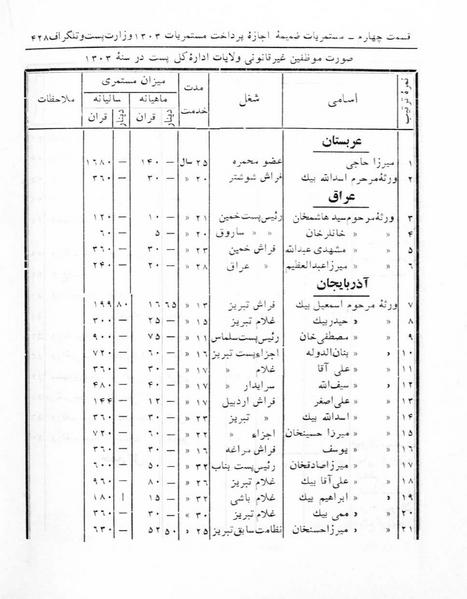 قسمت چهارم ـ مستمریات ضمیمهٔ اجازهٔ پرداخت مستمریات ۱۳۰۳ وزارت پست و تلگراف ۴۲۸
صورت موظفین غیرقانونی ولایات ادارهٔ کل پست در سنهٔ ۱۳۰۳
نمرهٔ ترتیب اسامی شغل مدت خدمت میزان مستمری ملاحظات
ماهیانه سالیانه
دینار قران دینار قران
عربستان
۱ میرزا حاجی عضو محمره ۲۵ سال — ۱۴۰ — ۱۶۸۰
۲ ورثهٔ مرحوم اسدالله بیك فراش شوشتر ۲۰ « — ۳۰ — ۳۶۰
عراق
۳ ورثهٔ مرحوم سید هاشمخان رئیس پست خمین ۲۱ « — ۱۰ — ۱۲۰
۴ « « خانلرخان « « ساروق ۲۰ « — ۵ — ۶۰
۵ « « مشهدی عبدالله فراش خمین ۲۳ « — ۳۰ — ۳۶۰
۶ « « میرزا عبدالعظیم « عراق ۲۸ « — ۲۰ — ۲۴۰
آذربایجان
۷ ورثهٔ مرحوم اسمعیل بیك فراش تبریز ۱۳ « ۶۵ ۱۶ ۸۰ ۱۹۹
۸ « « حیدر بیك غلام تبریز ۱۵ « — ۲۵ — ۳۰۰
۹ « « مصطفی خان رئیس پست سلماس ۱۱ « — ۷۵ — ۹۰۰
۱۰ « « بنان الدوله اجزاء پست تبریز ۱۶ « — ۶۰ — ۷۲۰
۱۱ « « علی آقا غلام « ۱۷ « — ۳۰ — ۳۶۰
۱۲ « « سیف الله سرایدار « ۱۷ « — ۴۰ — ۴۸۰
۱۳ « « علی اصغر فراش اردبیل ۱۷ « — ۱۲ — ۱۴۴
۱۴ « « اسدالله بیك « تبریز ۲۳ « — ۳۰ — ۳۶۰
۱۵ « « میرزا حسینخان اجزاء « ۲۲ « — ۶۰ — ۷۲۰
۱۶ « « یوسف فراش مراغه ۱۶ « — ۳۰ — ۳۶۰
۱۷ « « میرزا صادقخان رئیس پست بناب ۳۲ « — ۵۰ — ۶۰۰
۱۸ « « علی آقا بیك غلام تبریز ۲۶ « — ۸۰ — ۹۶۰
۱۹ « « ابراهیم بیك غلام باشی ۳۲ « — ۱۵ ۱۸۰
۲۰ « « ممی بیك غلام تبریز ۳۰ « — ۳۰ — ۳۶۰
۲۱ « « میرزا حسنخان نظامت سابق تبریز ۲۵ « ۵۰ ۵۲ — ۶۳۰